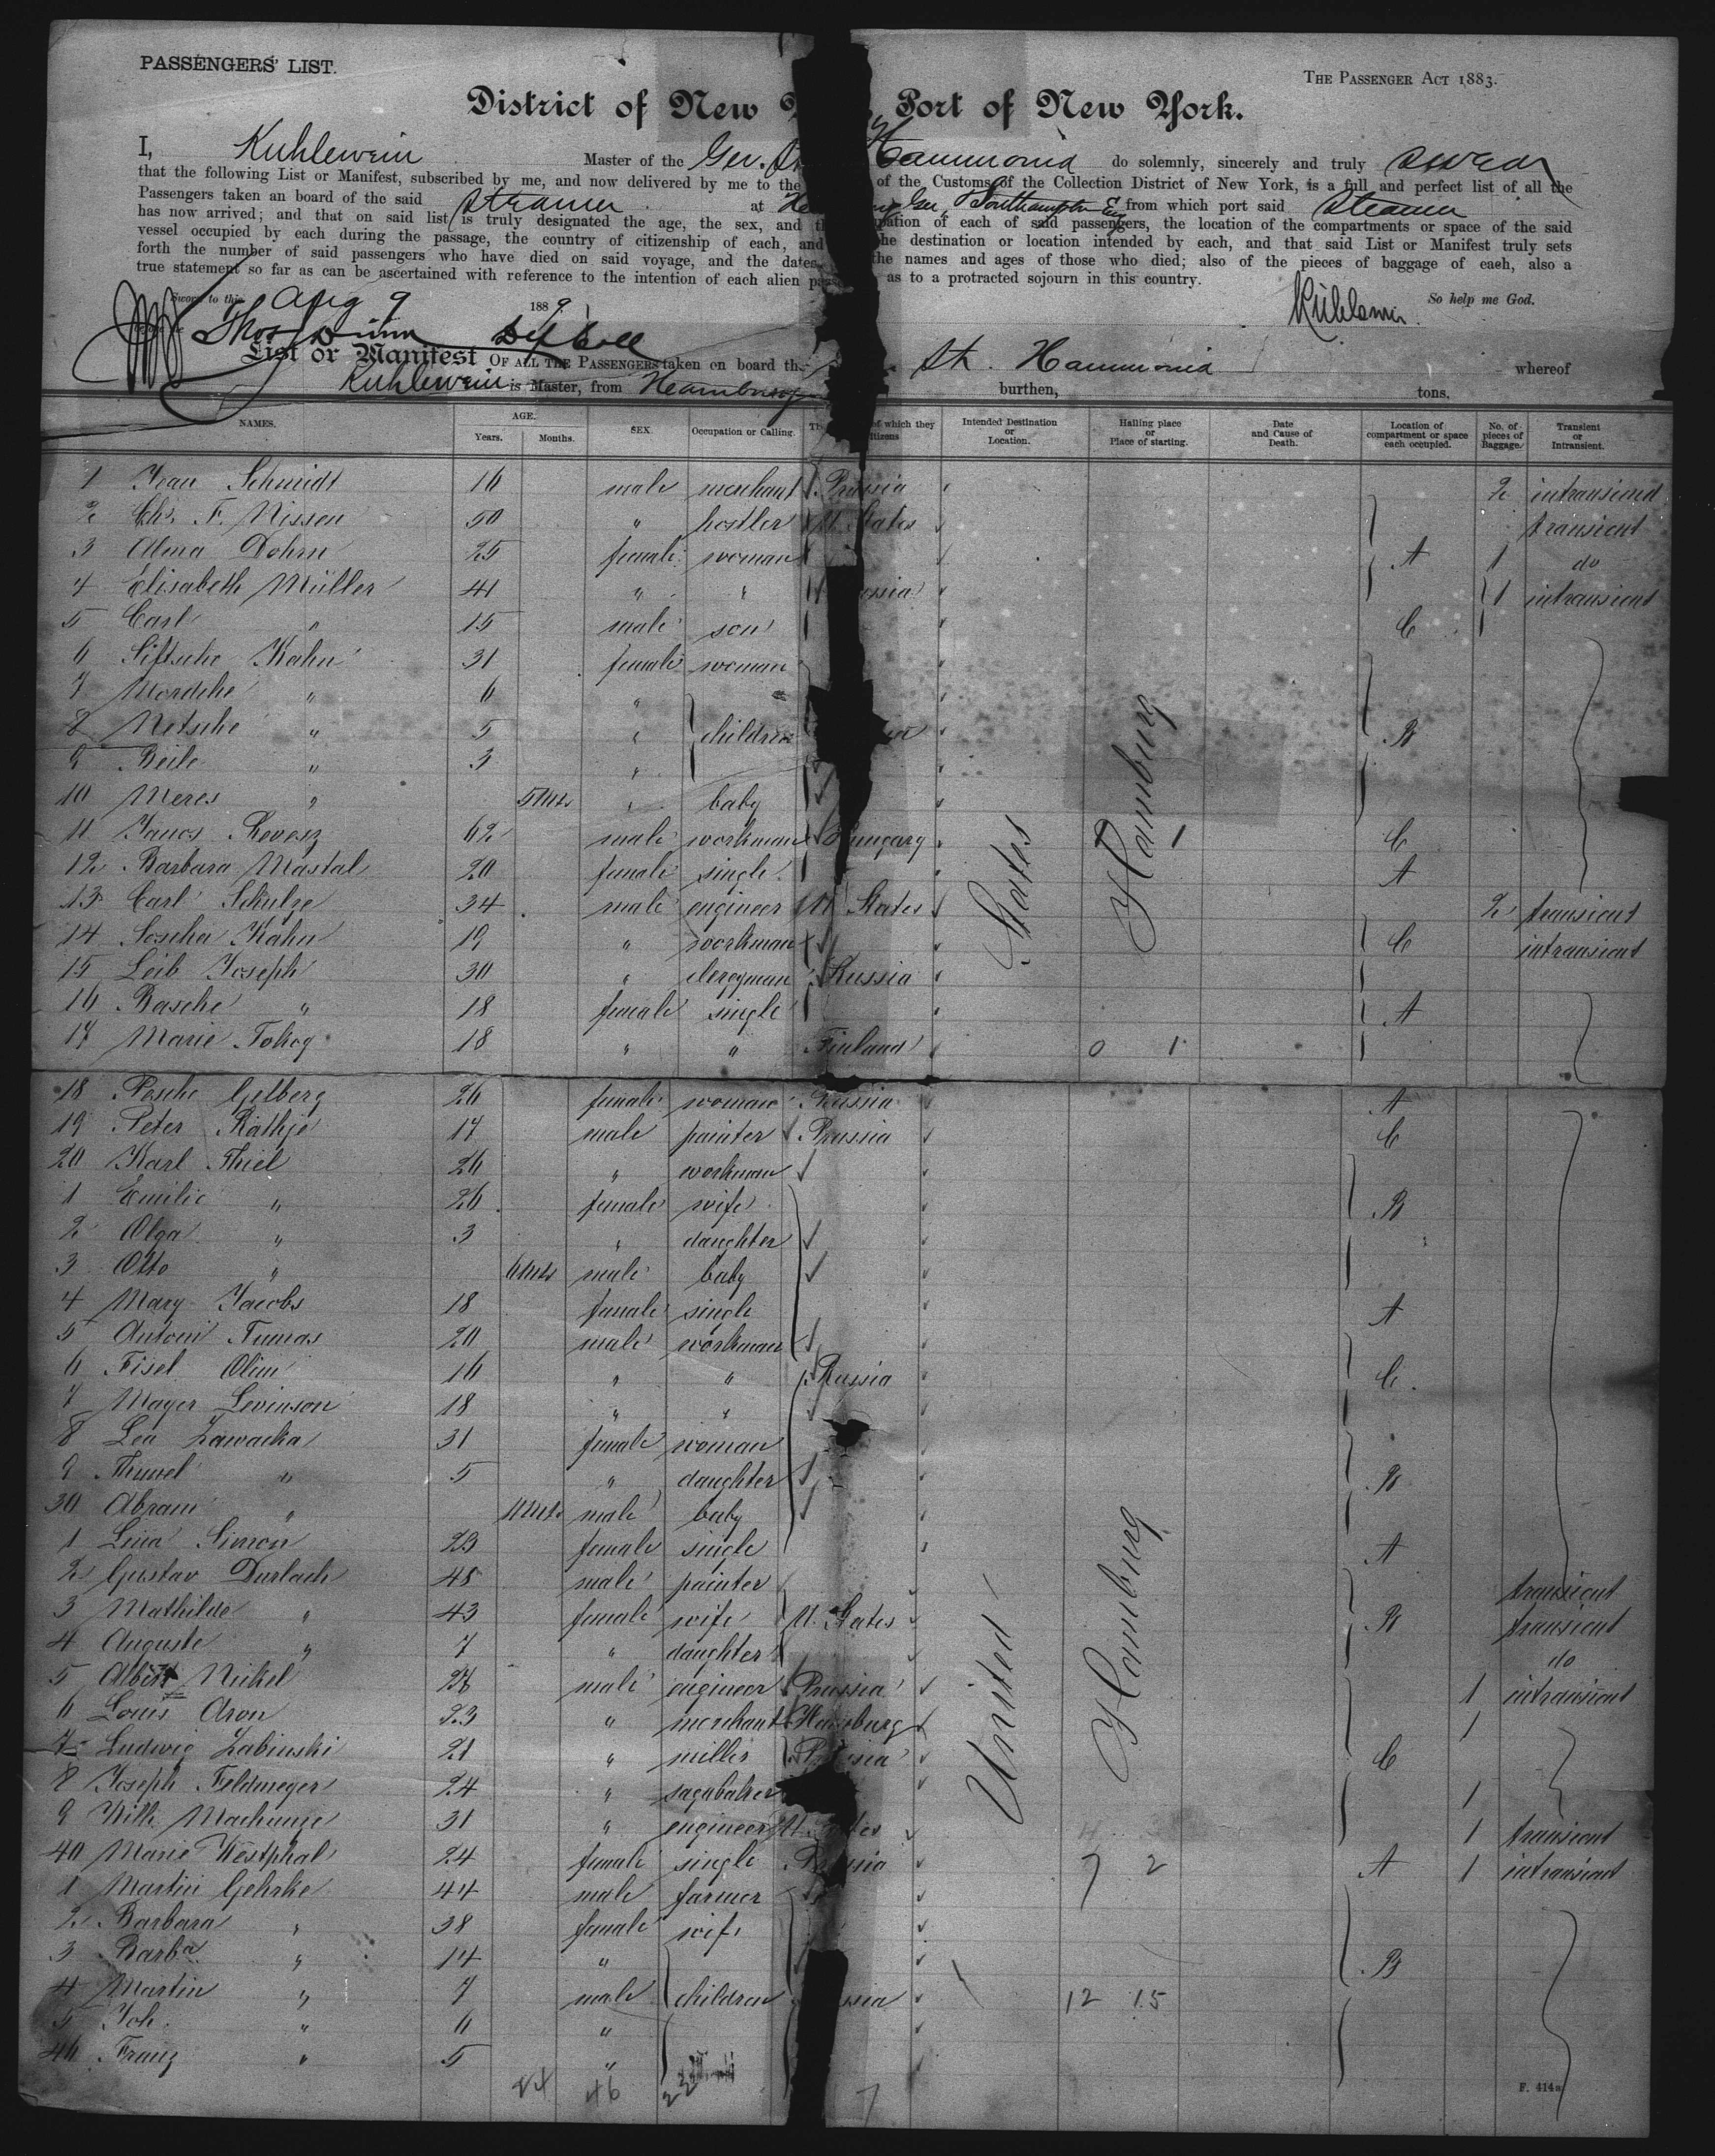 PASSENGERS' LIST.
THE PASSENGER ACT 1883.
District of New Port of New York.
I, Kuhlewein Master of the Ger. Hammonia do solemnly, sincerely and truly swear
that the following List or Manifest, subscribed by me, and now delivered by me to the of the Customs of the Collection District of New York, is a full and perfect list of all the
Passengers taken an board of the said Steamer at Southampton Eng from which port said Steamer
has now arrived; and that on said list is truly designated the age, the sex, and of each of said passengers, the location of the compartments or space of the said
vessel occupied by each during the passage, the country of citizenship of each, and the destination or location intended by each, and that said List or Manifest truly sets
forth the number of said passengers who have died on said voyage, and the dates the names and ages of those who died; also of the pieces of baggage of each, also a
true statement so far as can be ascertained with reference to the intention of each alien as to a protracted sojourn in this country.
Sworn to this Aug 9 1889
So help me God.
Thos Dunn Dep Coll
Kühlewein
List or Manifest OF ALL THE PASSENGERS taken on board the St. Hammonia whereof
Kuhlewein is Master, from Hamburg burthen, tons.
NAMES. AGE. Years. Months. SEX. Occupation or Calling. of which they Intended Destination or Location. Halling place or Place of starting. Date and Cause of Death. Location of compartment or space each occupied. No. of pieces of Baggage. Transient or Intransient.
1 Schmidt 16 male merchant Prussia 2 intransient
2 Chr. F. Nissen 50 " hostler U. States transient
3 Alma Dohrn 25 female woman A 1 do
4 Elisabeth Müller 41 " " 1 intransient
5 Carl " 15 male son C
6 Kahn 31 female woman
7 Mordche " 6 "
8 Netsche " 5 " children B
9 Beile " 3 "
10 Meres " 5 Mts " baby
11 62 male workman Hungary C
12 Barbara Mastal 20 female single A
13 Carl Schulze 34 male engineer U. States 2 transient
14 Soscha Kahn 19 " workman C intransient
15 Leib Joseph 30 " clergyman Russia
16 Basche " 18 female single A
17 Marie 18 " " Finland 0 1
18 Pesche Gelberg 26 female woman Russia A
19 Peter Räthje 17 male painter Prussia C
20 Karl Thiel 26 " workman
1 Emilie " 26 female wife B
2 Olga " 3 " daughter
3 Otto " 6 Mts male baby
4 Mary Jacobs 18 female single A
5 Antoni Tumas 20 male workman
6 Fisel Olim 16 " " Russia C
7 Mayer Levinson 18 " "
8 Lea Zawacka 31 female woman
9 " 5 " daughter B
30 Abram " 11 Mts male baby
1 Lina Simon 23 female single A
2 Gustav Durlach 48 male painter transient
3 Mathilde " 43 female wife U. States B transient
4 Auguste " 7 " daughter do
5 Albert Nickel male engineer Prussia 1 intransient
6 Louis Aron 23 " merchant Hamburg 1
7 Ludwig Zabinski 21 " miller C
8 Joseph Feldmeyer 24 " 1
9 Wilh. 31 " engineer U. States 1 transient
40 Marie Westphal 24 female single 7 2 A 1 intransient
1 Martin Gehrke 44 male farmer
2 Barbara " 38 female wife
3 Barba " 14 " B
4 Martin " 7 male children 12 15
5 Joh. " 6 "
46 Franz " 5 "
United States
Hamburg
Hamburg
24 46 22
F. 414a